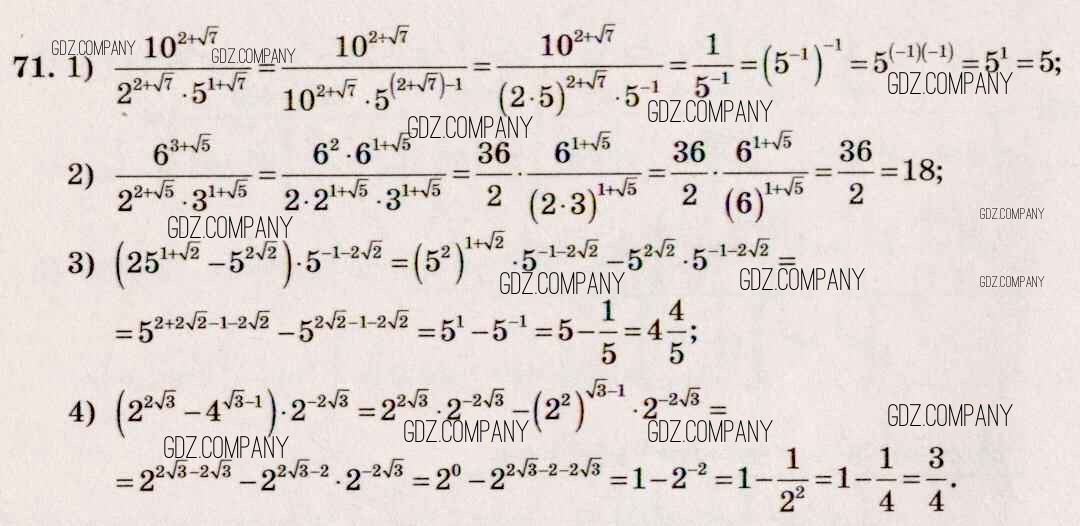 71. 1) \frac{10^{2+\sqrt{7}}}{2^{2+\sqrt{7}} \cdot 5^{1+\sqrt{7}}} = \frac{10^{2+\sqrt{7}}}{10^{2+\sqrt{7}} \cdot 5^{(2+\sqrt{7})-1}} = \frac{10^{2+\sqrt{7}}}{(2 \cdot 5)^{2+\sqrt{7}} \cdot 5^{-1}} = \frac{1}{5^{-1}} = (5^{-1})^{-1} = 5^{(-1)(-1)} = 5^1 = 5;
2) \frac{6^{3+\sqrt{5}}}{2^{2+\sqrt{5}} \cdot 3^{1+\sqrt{5}}} = \frac{6^2 \cdot 6^{1+\sqrt{5}}}{2 \cdot 2^{1+\sqrt{5}} \cdot 3^{1+\sqrt{5}}} = \frac{36}{2} \cdot \frac{6^{1+\sqrt{5}}}{(2 \cdot 3)^{1+\sqrt{5}}} = \frac{36}{2} \cdot \frac{6^{1+\sqrt{5}}}{(6)^{1+\sqrt{5}}} = \frac{36}{2} = 18;
3) (25^{1+\sqrt{2}} - 5^{2\sqrt{2}}) \cdot 5^{-1-2\sqrt{2}} = (5^2)^{1+\sqrt{2}} \cdot 5^{-1-2\sqrt{2}} - 5^{2\sqrt{2}} \cdot 5^{-1-2\sqrt{2}} =
= 5^{2+2\sqrt{2}-1-2\sqrt{2}} - 5^{2\sqrt{2}-1-2\sqrt{2}} = 5^1 - 5^{-1} = 5 - \frac{1}{5} = 4\frac{4}{5};
4) (2^{2\sqrt{3}} - 4^{\sqrt{3}-1}) \cdot 2^{-2\sqrt{3}} = 2^{2\sqrt{3}} \cdot 2^{-2\sqrt{3}} - (2^2)^{\sqrt{3}-1} \cdot 2^{-2\sqrt{3}} =
= 2^{2\sqrt{3}-2\sqrt{3}} - 2^{2\sqrt{3}-2} \cdot 2^{-2\sqrt{3}} = 2^0 - 2^{2\sqrt{3}-2-2\sqrt{3}} = 1 - 2^{-2} = 1 - \frac{1}{2^2} = 1 - \frac{1}{4} = \frac{3}{4}.
GDZ.COMPANY
GDZ.COMPANY
GDZ.COMPANY
GDZ.COMPANY
GDZ.COMPANY
GDZ.COMPANY
GDZ.COMPANY
GDZ.COMPANY
GDZ.COMPANY
GDZ.COMPANY
GDZ.COMPANY
GDZ.COMPANY
GDZ.COMPANY
GDZ.COMPANY